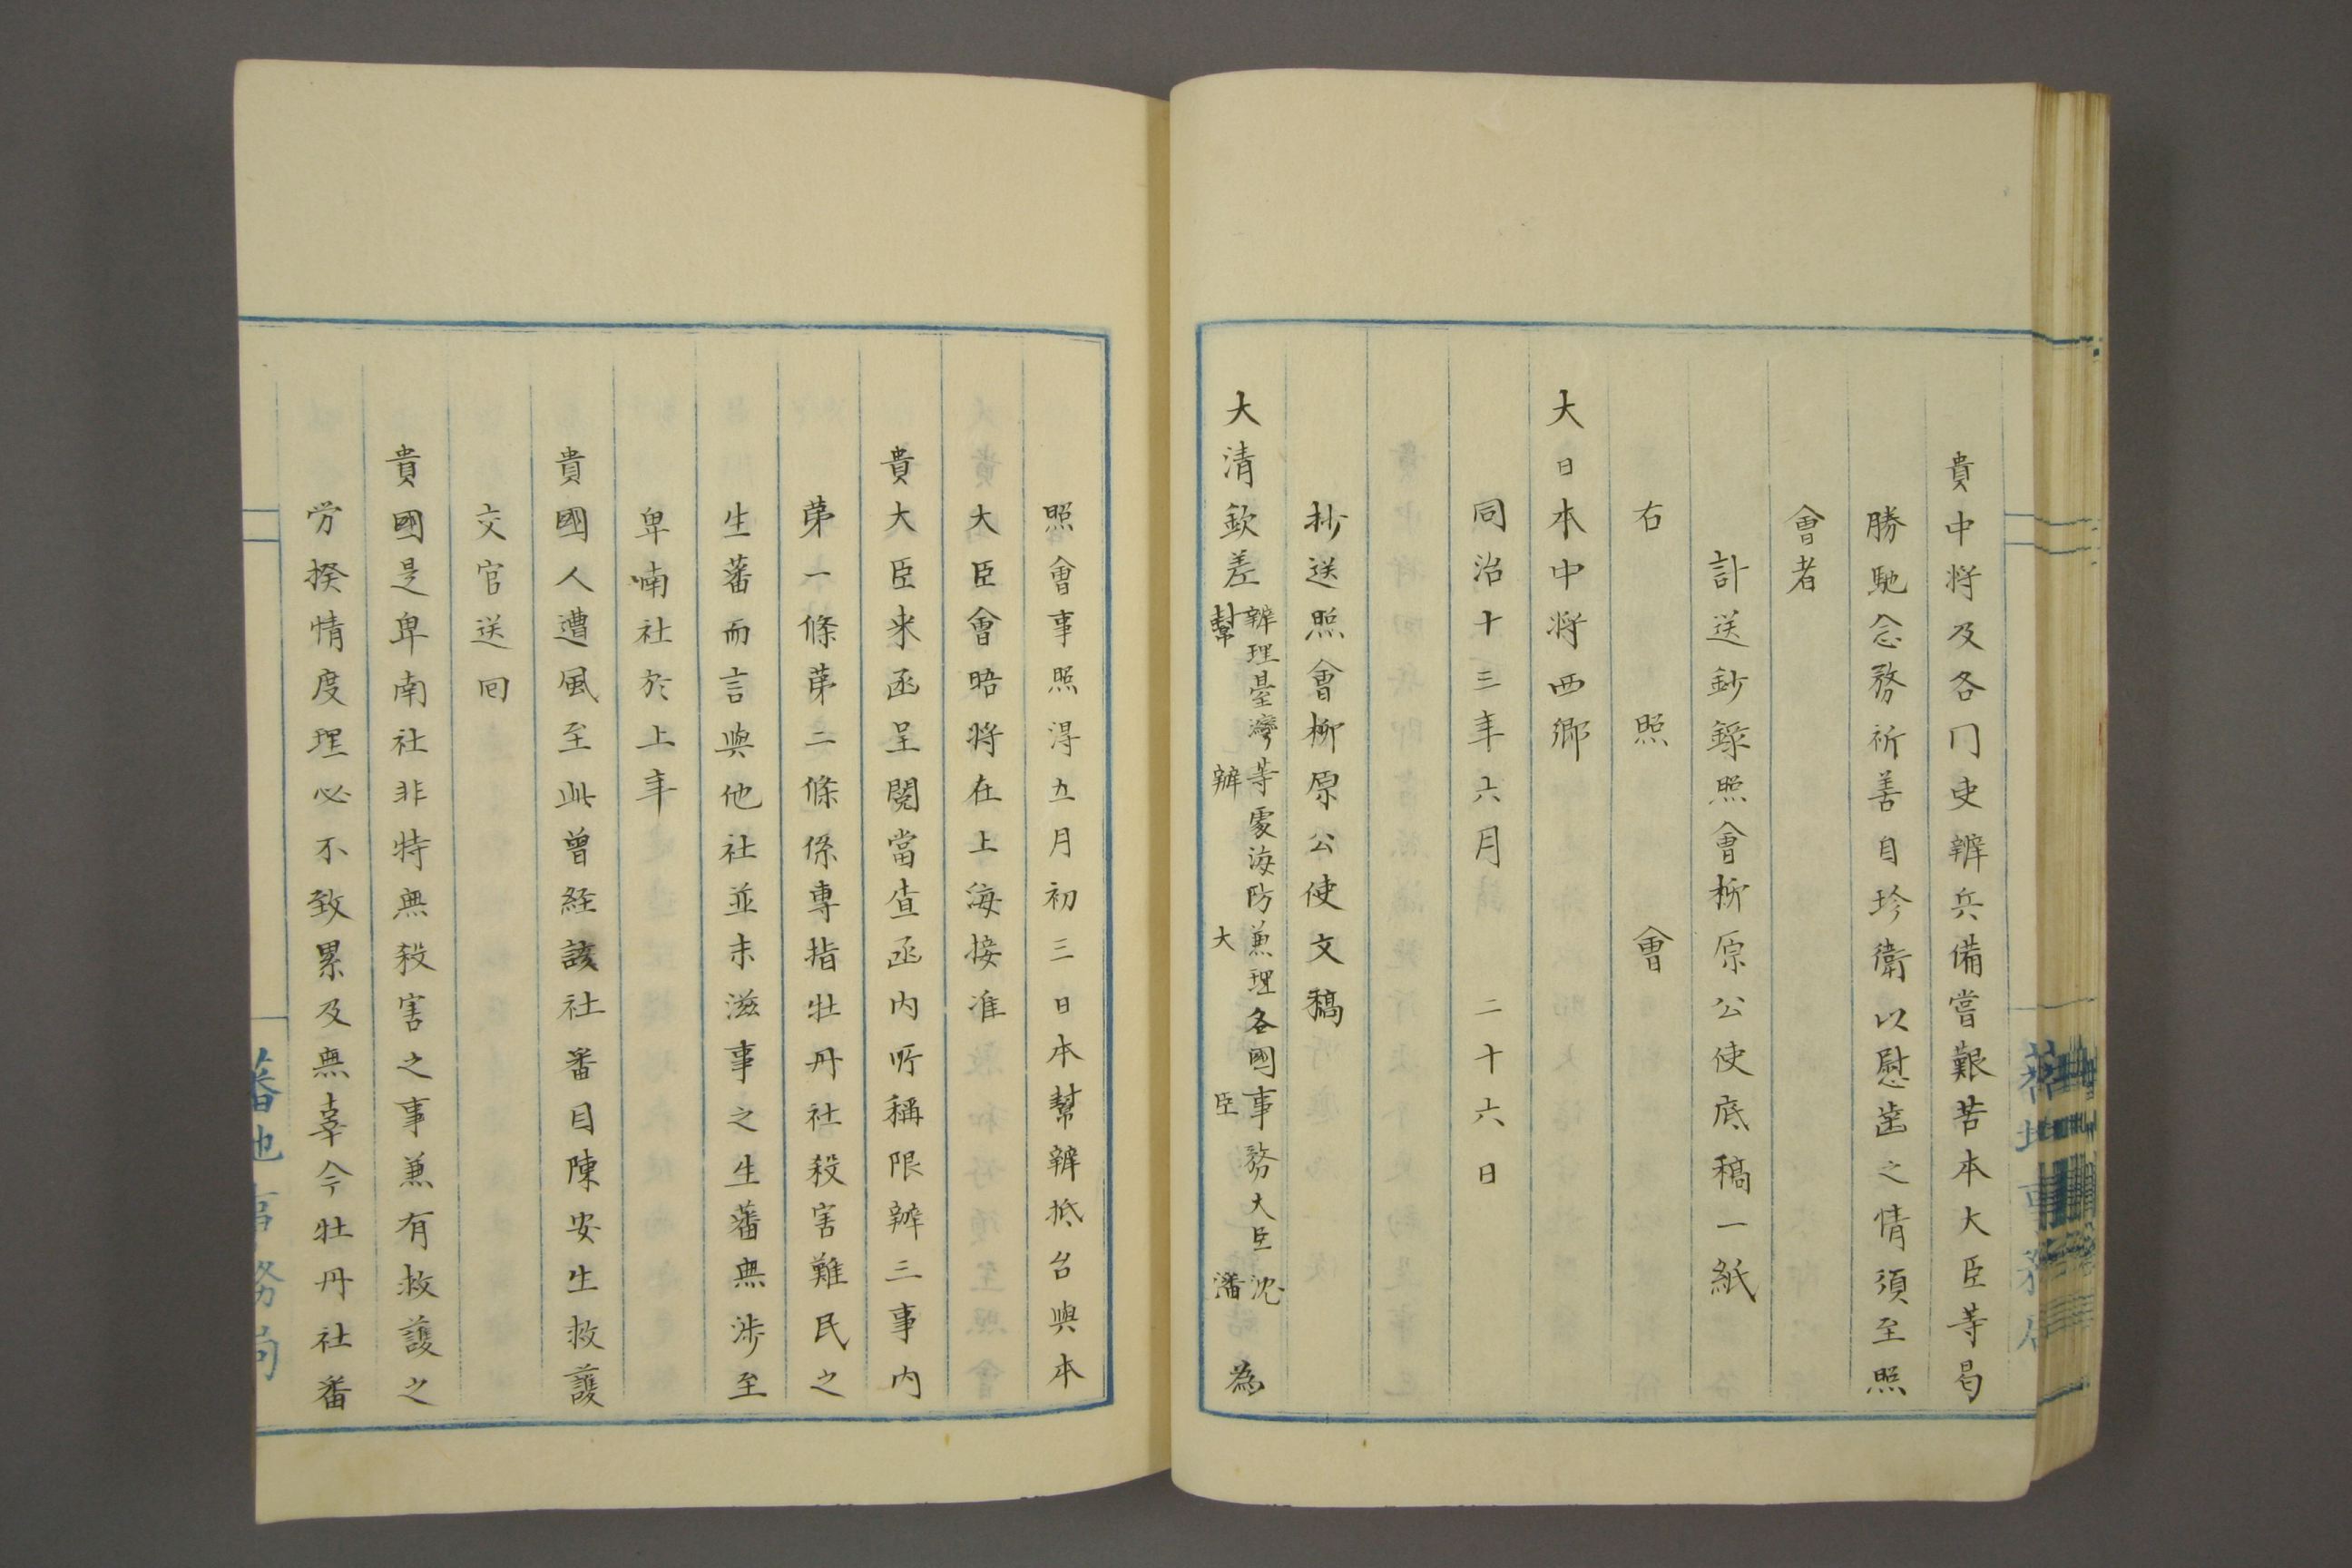 貴中将及各冃吏辨兵備嘗艱苦本大臣等曷
勝馳念務祈善自珍衛以慰遠之情須至照
會者
計送鈔録照會柳原公使底稿一紙
右照會
大日本中将西郷
同治十三年六月二十六日
抄送照會柳原公使文稿
大清欽差辦理臺灣等處海防兼理各國事務大臣沈
幫辨大臣潘
為
照會事照淂五月初三日本幫辦抵台與本
大臣會晤將在上海接准
貴大臣来函呈閲當查函内所稱限辦三事内
第一條第二條係專指牡丹社殺害難民之
生蕃而言與他社並未滋事之生蕃無涉至
卑喃社於上年
貴國人遭風至此曾経該社番目陳安生救護
交官送囘
貴國是卑南社非特無殺害之事兼有救護之
労揆情度理必不致累及無辜今牡丹社番
蕃地事務局